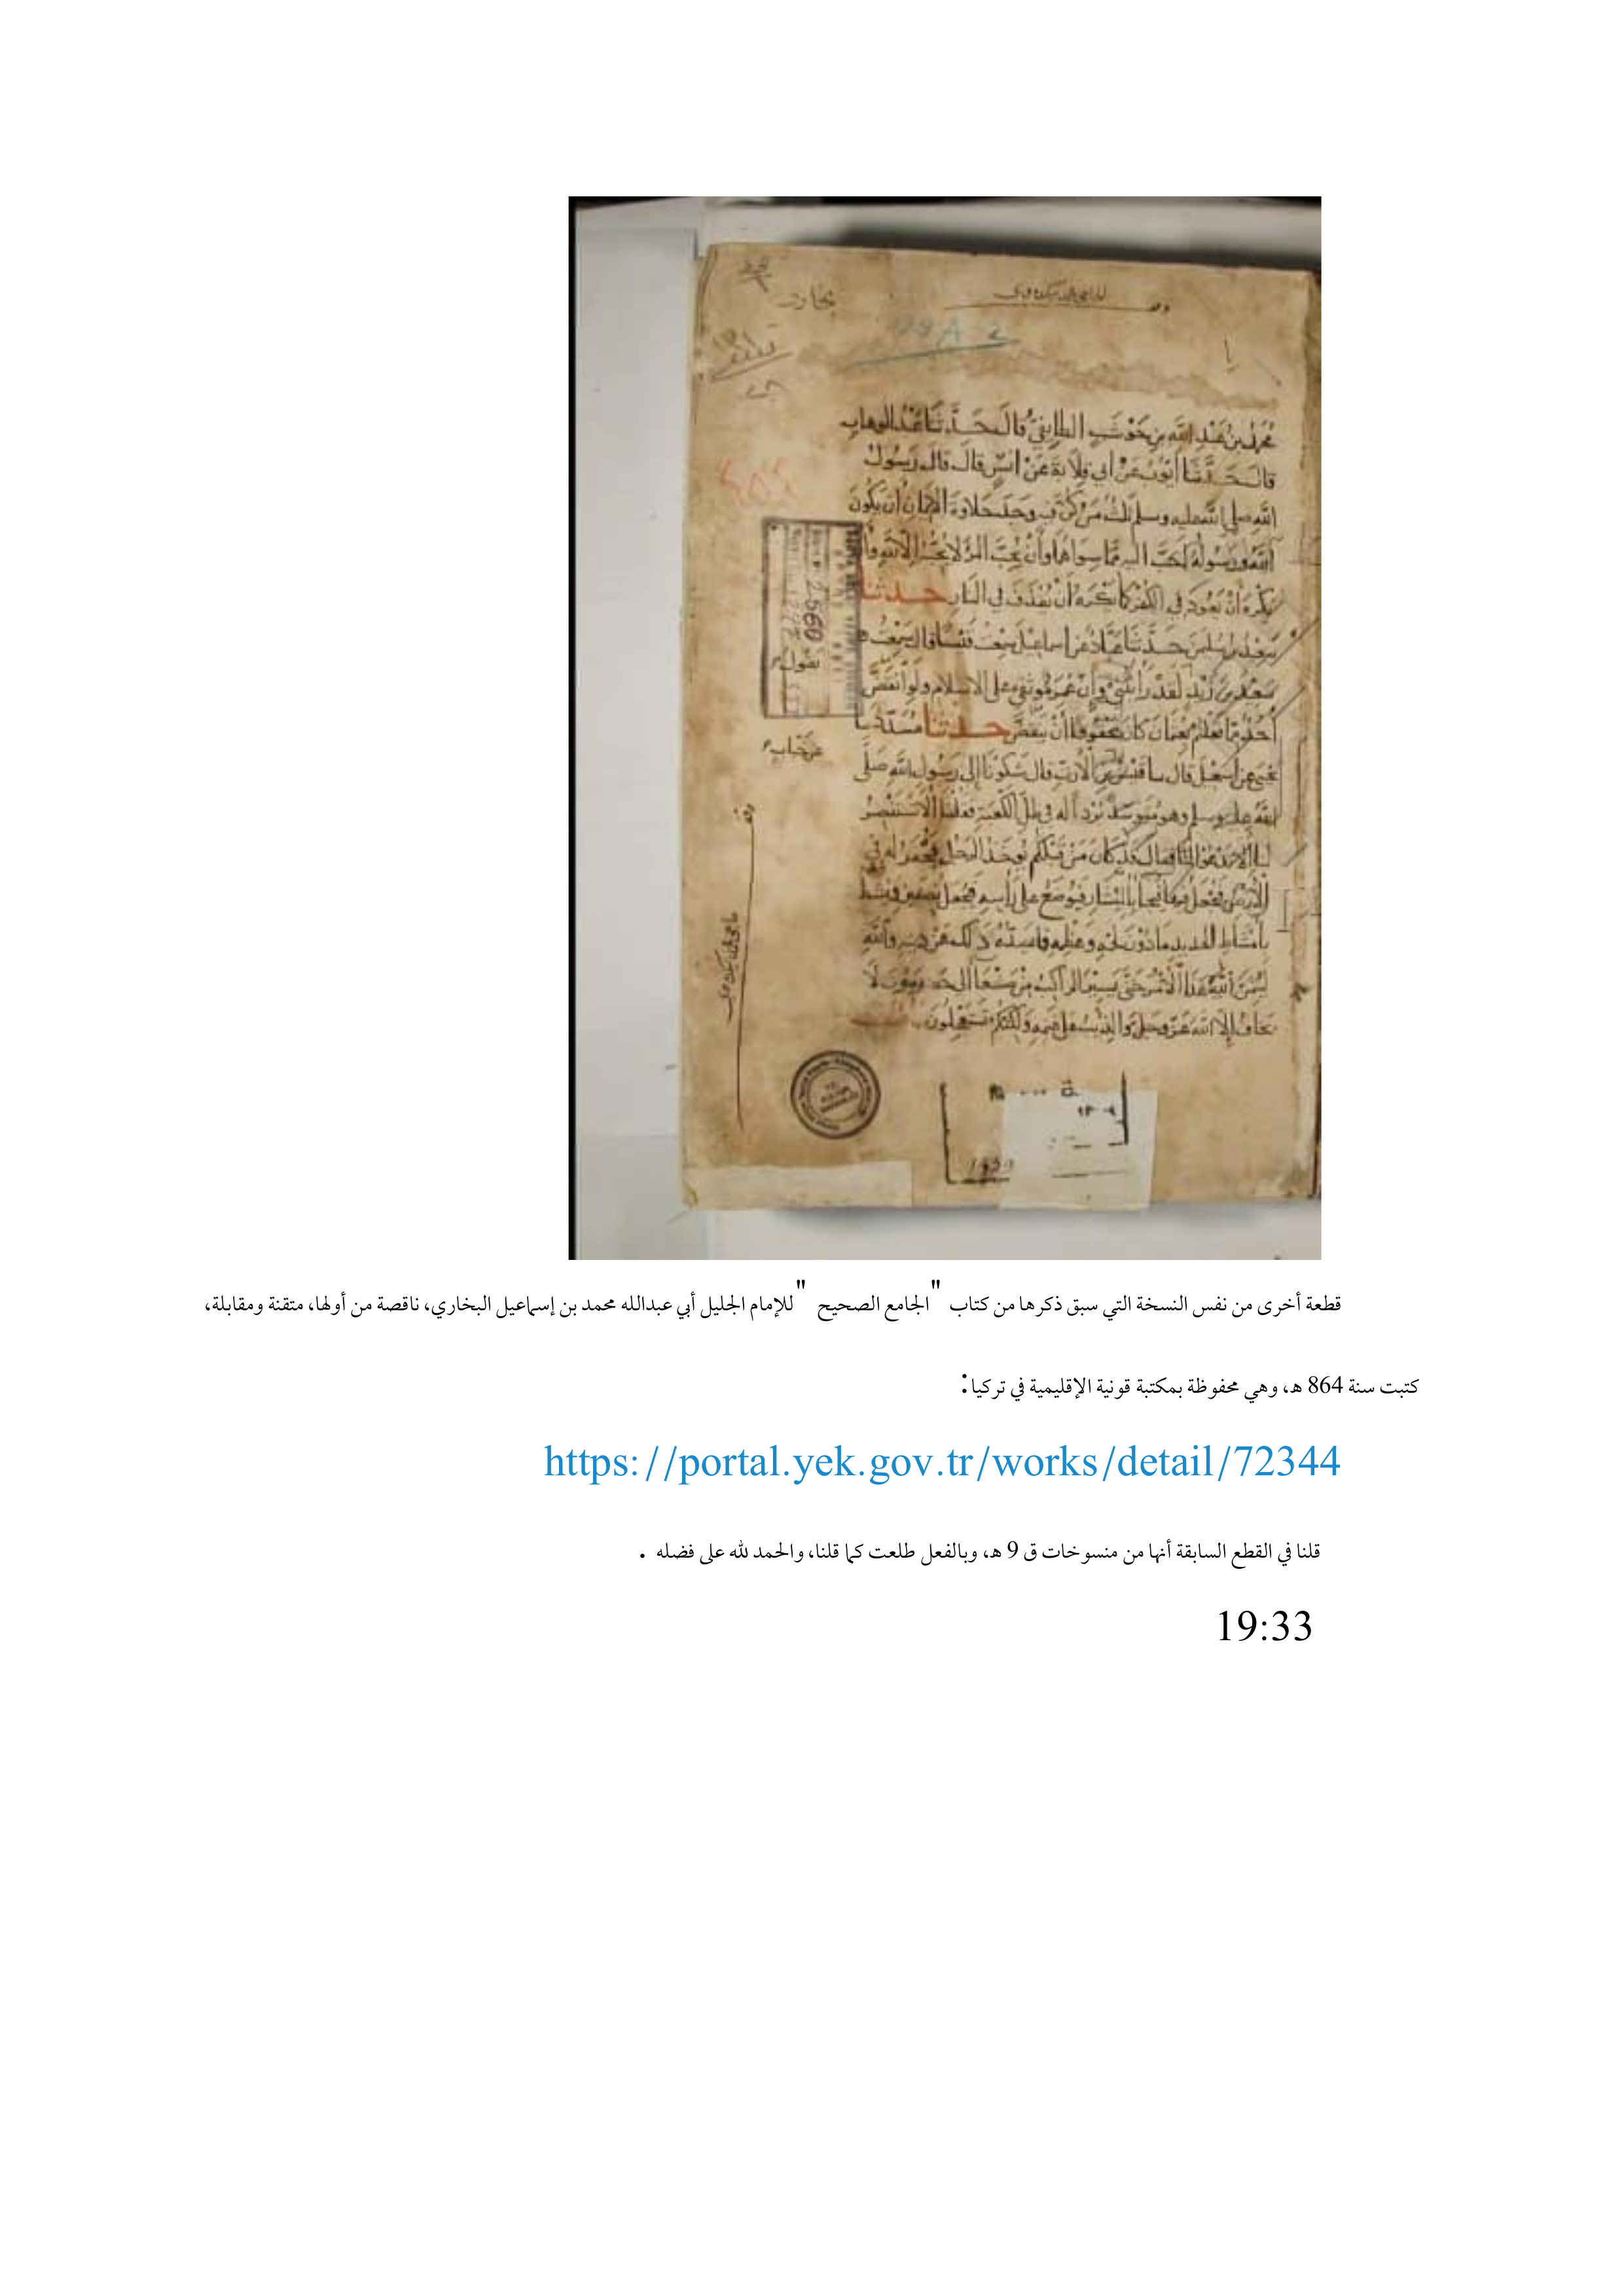 بخاري
29A-2
محمد بن عَبْدِ الله بن حَوْشَبٍ الطايفيُّ قَالَ حَدَّثَنَا عَبْدُ الوهاب
قال حَدَّثَنَا أيّوبُ عَنْ أبي قِلَابَةَ عَنْ أنسٍ قال قال رَسُولُ
الله صلى الله عليه وسلم ثلثٌ مَنْ كُنَّ فيه وَجَدَ حَلاوَةَ الإيمانِ أن يَكُونَ
اللهُ ورسُولُهُ أحَبَّ اليه مما سِواهُما وَأَنْ يُحِبَّ المَرْءَ لا يُحِبُّهُ إلا لله وأنْ
يَكْرَهَ أَنْ يَعُودَ في الكُفْرِ كما يَكْرَهُ أَنْ يُقذَفَ في النار حدثنا
سعيد بن سليمن حَدَّثَنَا عَبَّادٌ عن اسماعيل سمعت قيسًا قال سمعت
سَعِيدَ بن زيدٍ لَقَدْ رَأَيْتُنِي وَإِنَّ عُمَرَ مُوثِقِي على الإسلام ولو انقَضَّ
أُحُدٌ مما فعلتم بعثمان كان مَحْقُوقًا أنْ يَنْقَضَّ حدثنا مُسَدَّد
يحيى عن اسمعيل قال قيس عن الأرت قال شكونا إلى رسول الله صلى
الله عليه وسلم وهو مُتَوسِّدٌ بُرْدةً له في ظل الكعبة فقلنا ألا تستنصر
لنا ألا تدعو لنا فقال قد كان مَن قبلكم يوخذ الرجل فيحفر له في
الأرض فيجعل فيها فيجاء بالمنشار فيوضع على رأسه فيجعل نصفين ويمشط
بأمشاط الحديد ما دون لحمه وعظمه فما يصده ذلك عن دينه والله
ليتمن هذا الأمر حتى يسير الراكب من صنعا إلى حضرموت لا
يخاف إلا الله عز وجل والذيب على غنمه ولكنكم تستعجلون
2560
يقول
عن خباب
وقف
قطعة أخرى من نفس النسخة التي سبق ذكرها من كتاب "الجامع الصحيح" للإمام الجليل أبي عبدالله محمد بن إسماعيل البخاري، ناقصة من أولها، متقنة ومقابلة،
كتبت سنة 864 هـ، وهي محفوظة بمكتبة قونية الإقليمية في تركيا:
https://portal.yek.gov.tr/works/detail/72344
قلنا في القطع السابقة أنها من منسوخات ق 9 هـ، وبالفعل طلعت كما قلنا، والحمد لله على فضله .
19:33